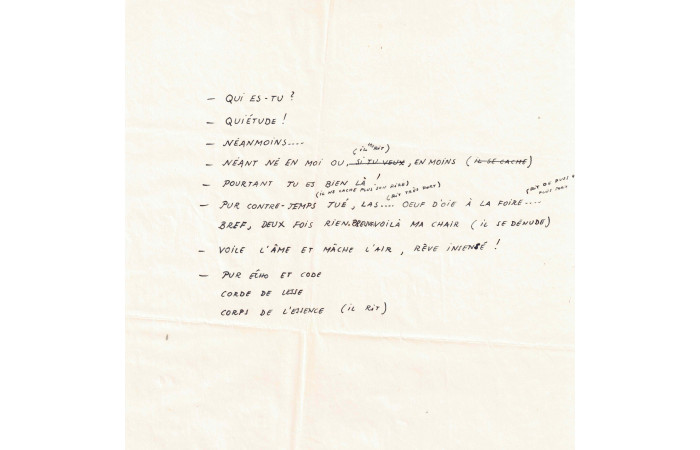 – QUI ES-TU ?
– QUIÉTUDE !
– NÉANMOINS....
(IL RIT)
– NÉANT NÉ EN MOI OU, SI TU VEUX, EN MOINS (IL SE CACHE)
– POURTANT TU ES BIEN LÀ !
(IL NE CACHE PLUS SON RIRE) (RIT TRÈS FORT) (RIT DE PLUS PLUS FORT
– PUR CONTRE-TEMPS TUÉ, LAS.... OEUF D'OIE À LA FOIRE....
BREF, DEUX FOIS RIEN. VOILÀ MA CHAIR (IL SE DÉNUDE)
– VOILE L'ÂME ET MÂCHE L'AIR, RÊVE INSENSÉ !
– PUR ÉCHO ET CODE
CORDE DE LIESSE
CORPS DE L'ESSENCE (IL RIT)